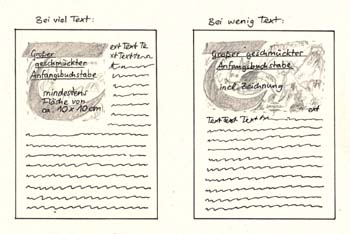 Bei viel Text:
Großer
geschmückter
Anfangsbuchstabe
mindestens
Fläche von
ca. 10 x 10 cm
ext Text Te
xt Text
Bei wenig Text:
Großer geschmückter
Anfangsbuchstabe
incl. Zeichnung
ext
Text Text Text